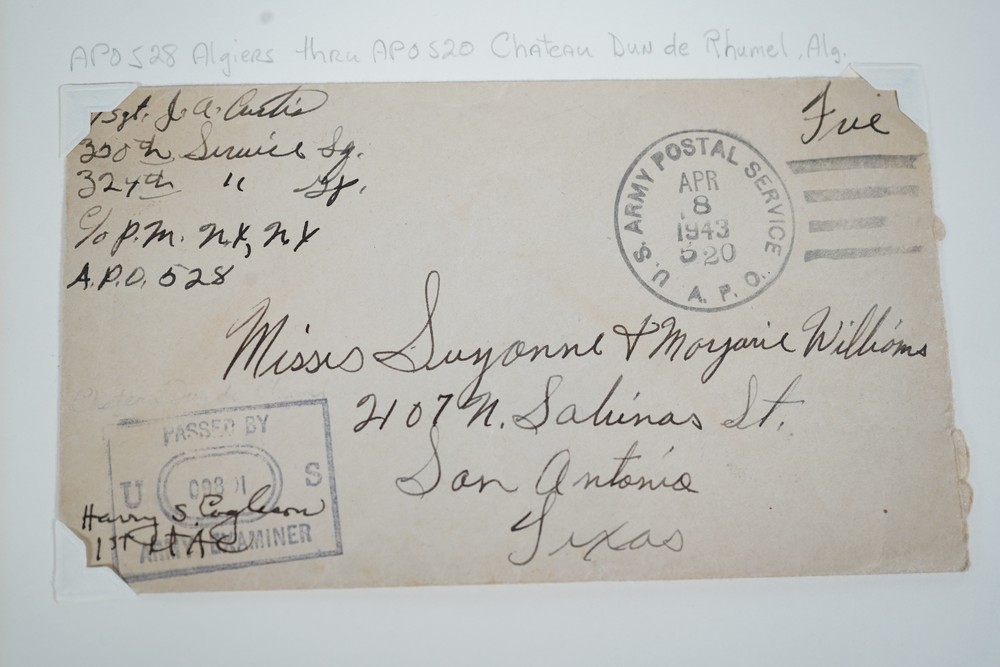 APO 528 Algiers thru APO 520 Chateau Dun de Rhumel, Alg.
Sgt. J. A. Curtis
350th Service Sq.
324th " Gp.
c/o P.M. N.Y., N.Y
A.P.O. 528
Free
U.S. ARMY POSTAL SERVICE
APR
8
1943
520
A. P. O.
Misses Suzanne & Marjorie Williams
2107 N. Sabinas St.
San Antonio
Texas
PASSED BY
U S
ARMY EXAMINER
Harry S.
1st Lt AC